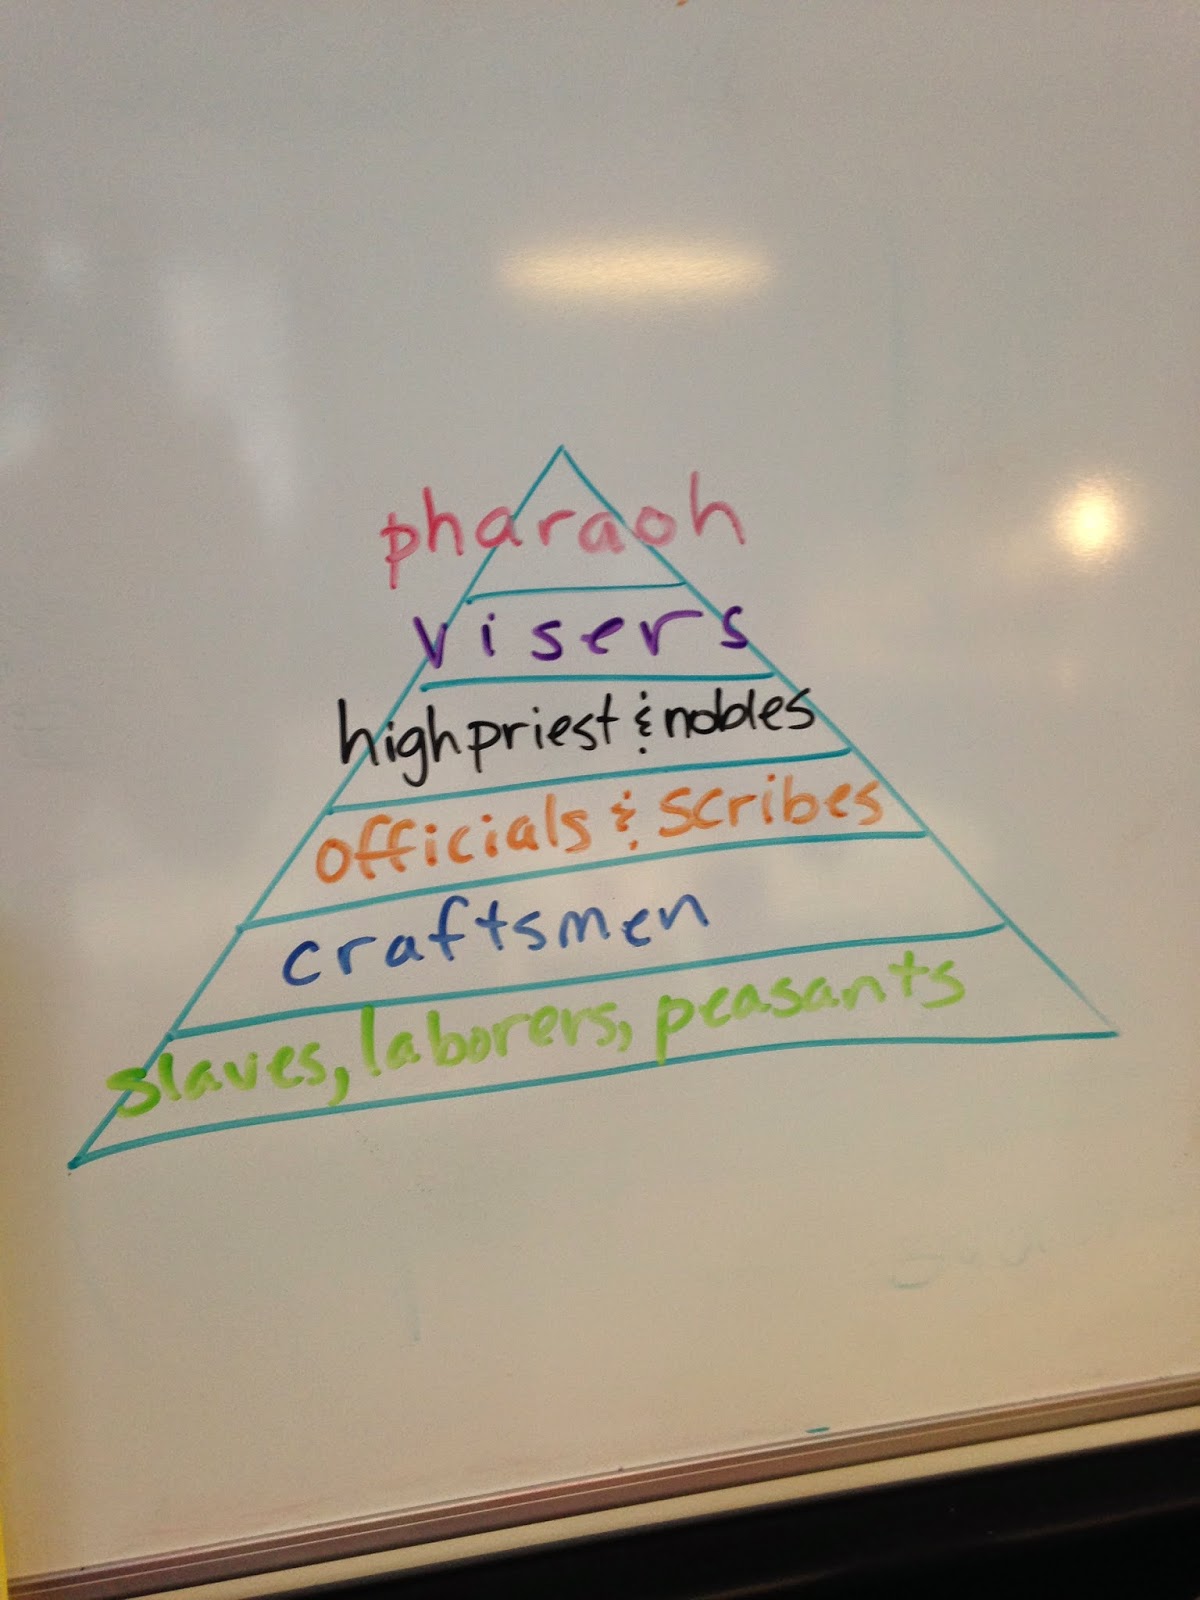 pharaoh
visers
high priest & nobles
officials & scribes
craftsmen
slaves, laborers, peasants